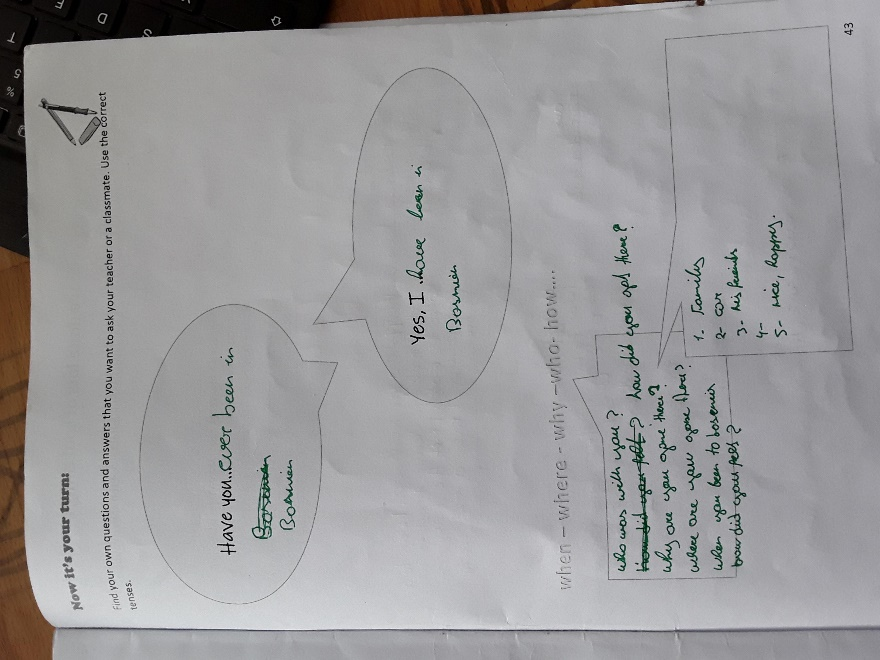 Now it's your turn:
Find your own questions and answers that you want to ask your teacher or a classmate. Use the correct
tenses.
Have you..ever been in
Bosnien
Bosnien
Yes, I have been in
Bosnien
when – where - why –who- how....
who was with you?
how did you felt? how did you get there?
why are you gone there?
where are you gone there?
when you been to bosnien
how did you felt?
1. Family
2- car
3- his friends
4-
5- nice, happy.
43